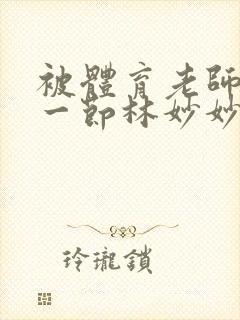 被體育老師
一節林妙妙
玲瓏鎖